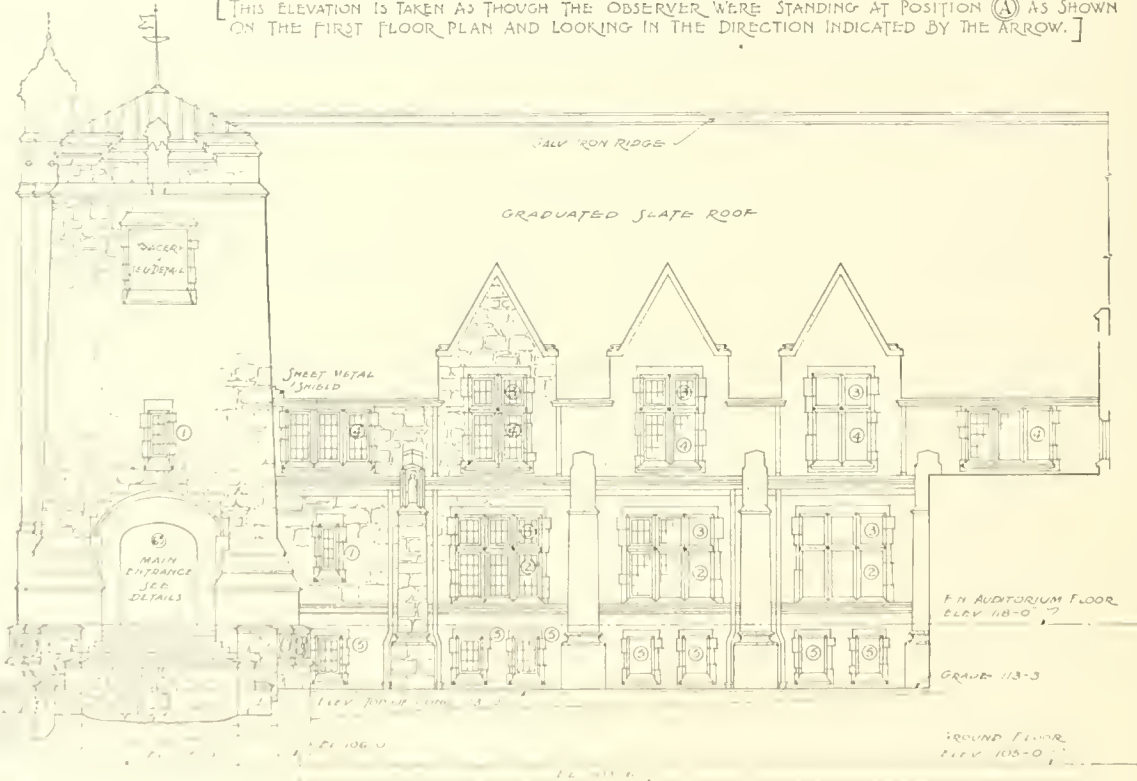 [THIS ELEVATION IS TAKEN AS THOUGH THE OBSERVER WERE STANDING AT POSITION (A) AS SHOWN
ON THE FIRST FLOOR PLAN AND LOOKING IN THE DIRECTION INDICATED BY THE ARROW.]
GALV IRON RIDGE
GRADUATED SLATE ROOF
TRACERY
DETAIL
SHEET METAL
SHIELD
3
3
3
1
4
4
4
4
4
3
3
3
1
2
2
2
6
MAIN
ENTRANCE
SEE
DETAILS
FIN AUDITORIUM FLOOR
ELEV 118-0"
5
5
5
5
5
5
5
GRADE 113-3
ELEV TOP OF
EL 106-0
GROUND FLOOR
ELEV 105-0"